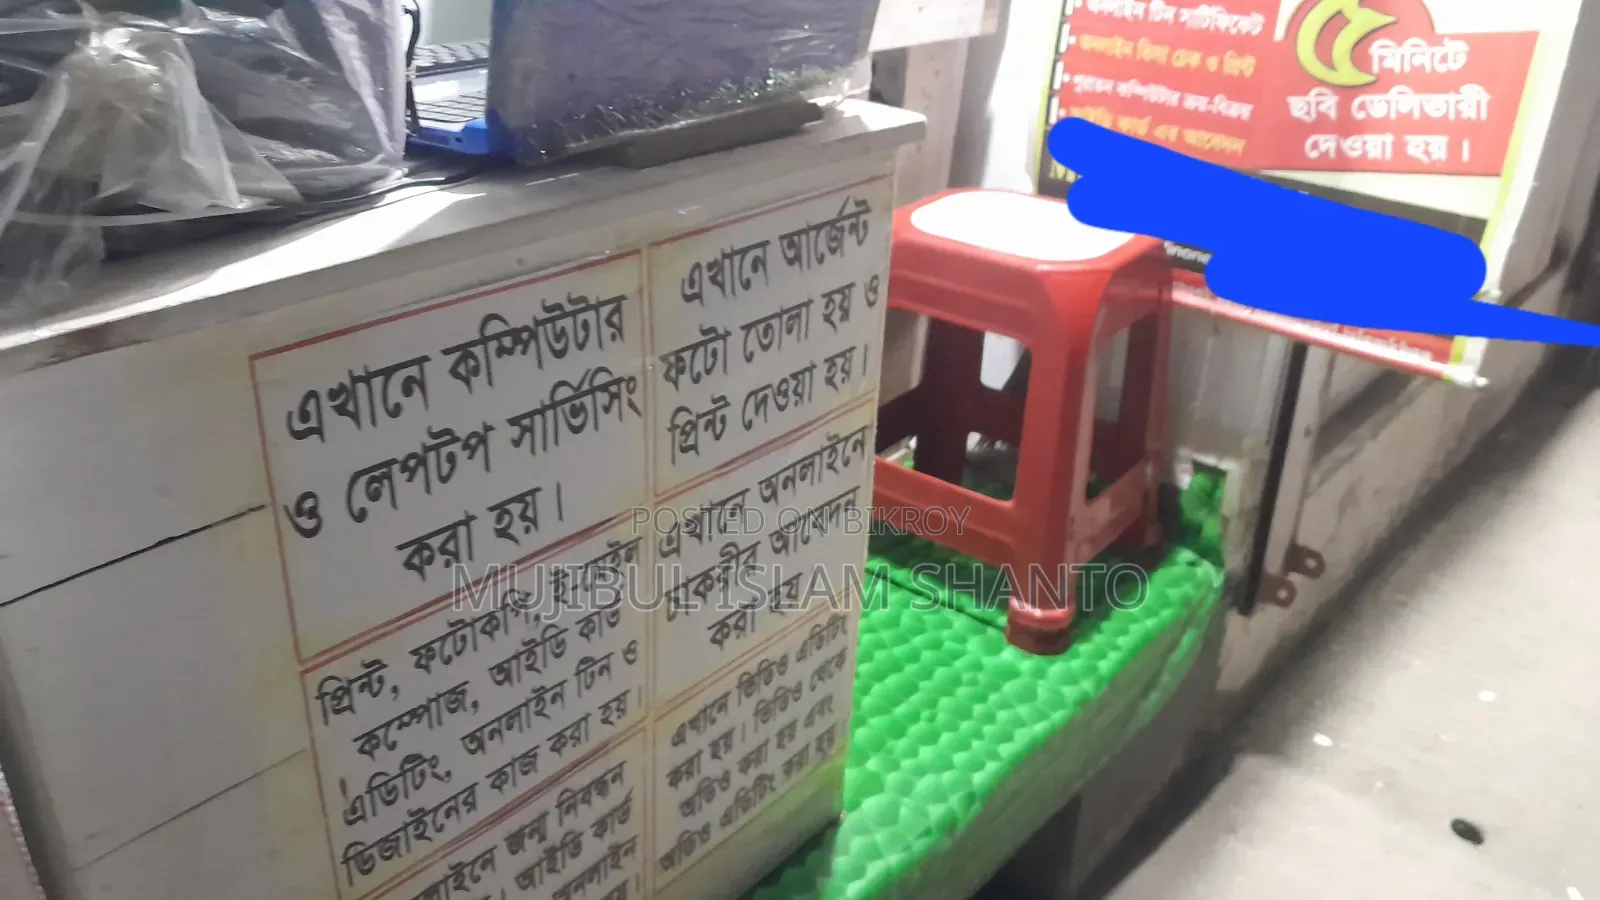 এখানে কম্পিউটার
ও লেপটপ সার্ভিসিং
করা হয়।
এখানে আর্জেন্ট
ফটো তোলা হয় ও
প্রিন্ট দেওয়া হয়।
প্রিন্ট, ফটোকপি, ই-মেইল
কম্পোজ, আইডি কার্ড
এডিটিং, অনলাইন টিন ও
ডিজাইনের কাজ করা হয়।
এখানে অনলাইনে
আবেদন
করা হয়
এখানে ভিডিও এডিটিং
করা হয়। ভিডিও থেকে
অডিও করা হয় এবং
অডিও এডিটিং করা হয়
জন্ম নিবন্ধন
আইডি কার্ড
অনলাইন
অনলাইন টিন সার্টিফিকেট
অনলাইন ভিসা চেক ও প্রিন্ট
পুরাতন কম্পিউটার ক্রয়-বিক্রয়
কার্ড এর আবেদন
৫
মিনিটে
ছবি ডেলিভারী
দেওয়া হয়।
POSTED ON BIKROY
MUJIBUL ISLAM SHANTO